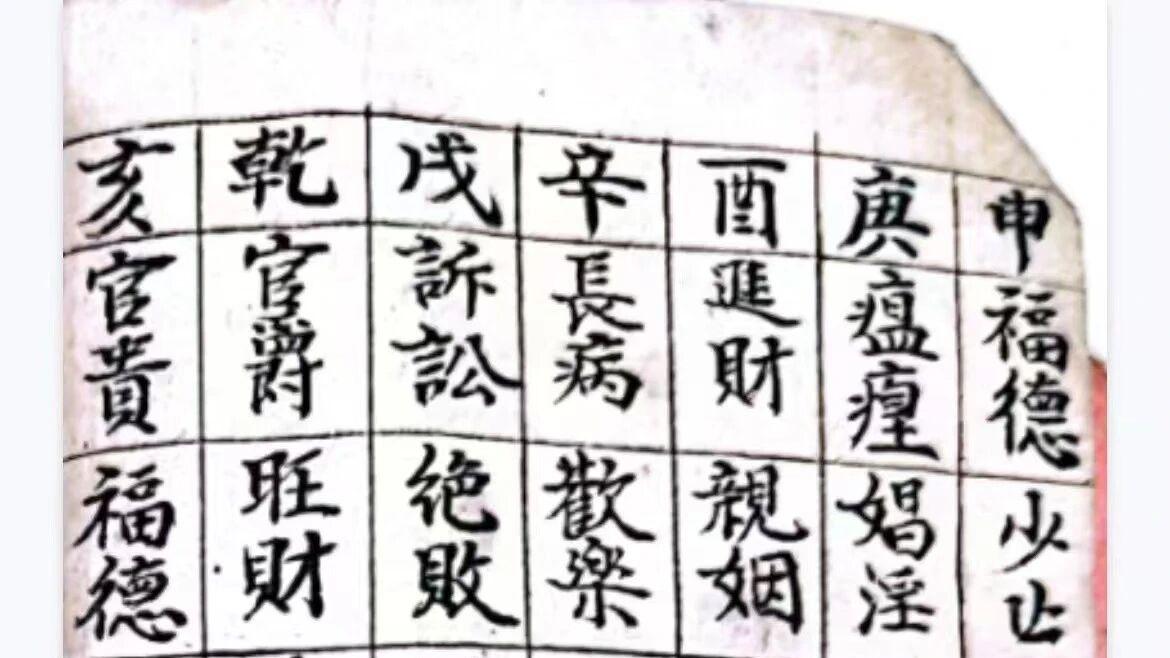 申 福德 少亡
庚 瘟㾮 娼淫
酉 進財 親姻
辛 長病 歡樂
戌 訴訟 絕敗
乾 官爵 旺財
亥 官貴 福德